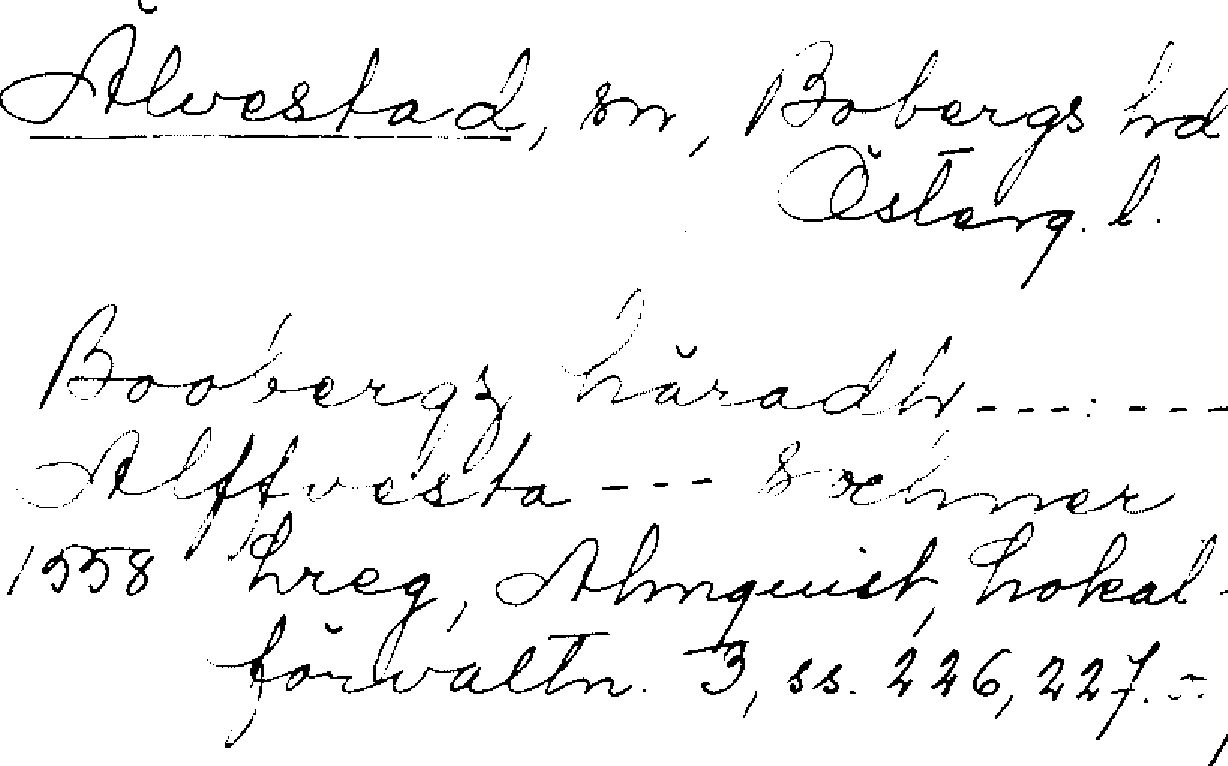 Älvestad, sn, Bobergs hd
Österg. l.
Boobergz häradh - - - : - - -
Alffvesta - - - Sochner
1558 Lreg, Almquist, Lokal-
förvaltn. 3, ss. 226, 227. -